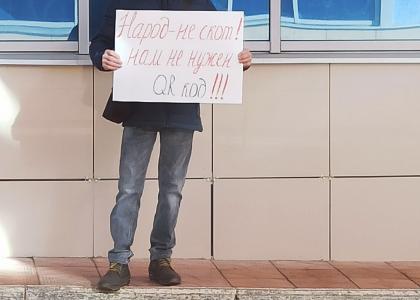 Народ-не скот!
нам не нужен
QR код!!!